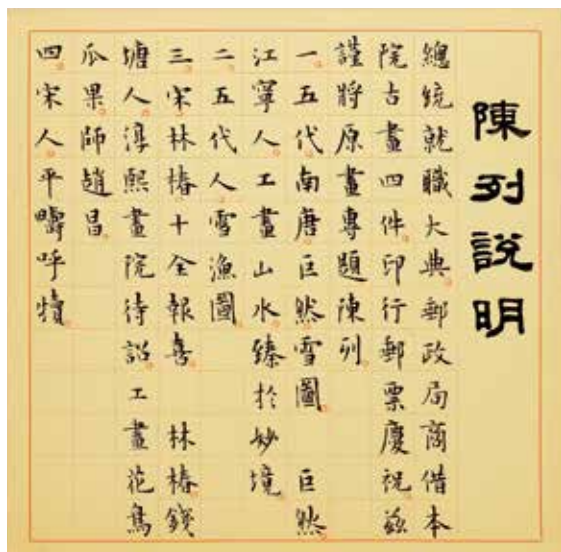 陳列說明
總統就職大典郵政局商借本
院古畫四件印行郵票慶祝茲
謹將原畫專題陳列
一五代南唐巨然雪圖 巨然
江寧人工畫山水臻於妙境
二五代人雪漁圖
三宋林椿十全報喜 林椿錢
塘人淳熙畫院待詔工畫花鳥
瓜果師趙昌
四宋人平疇呼犢